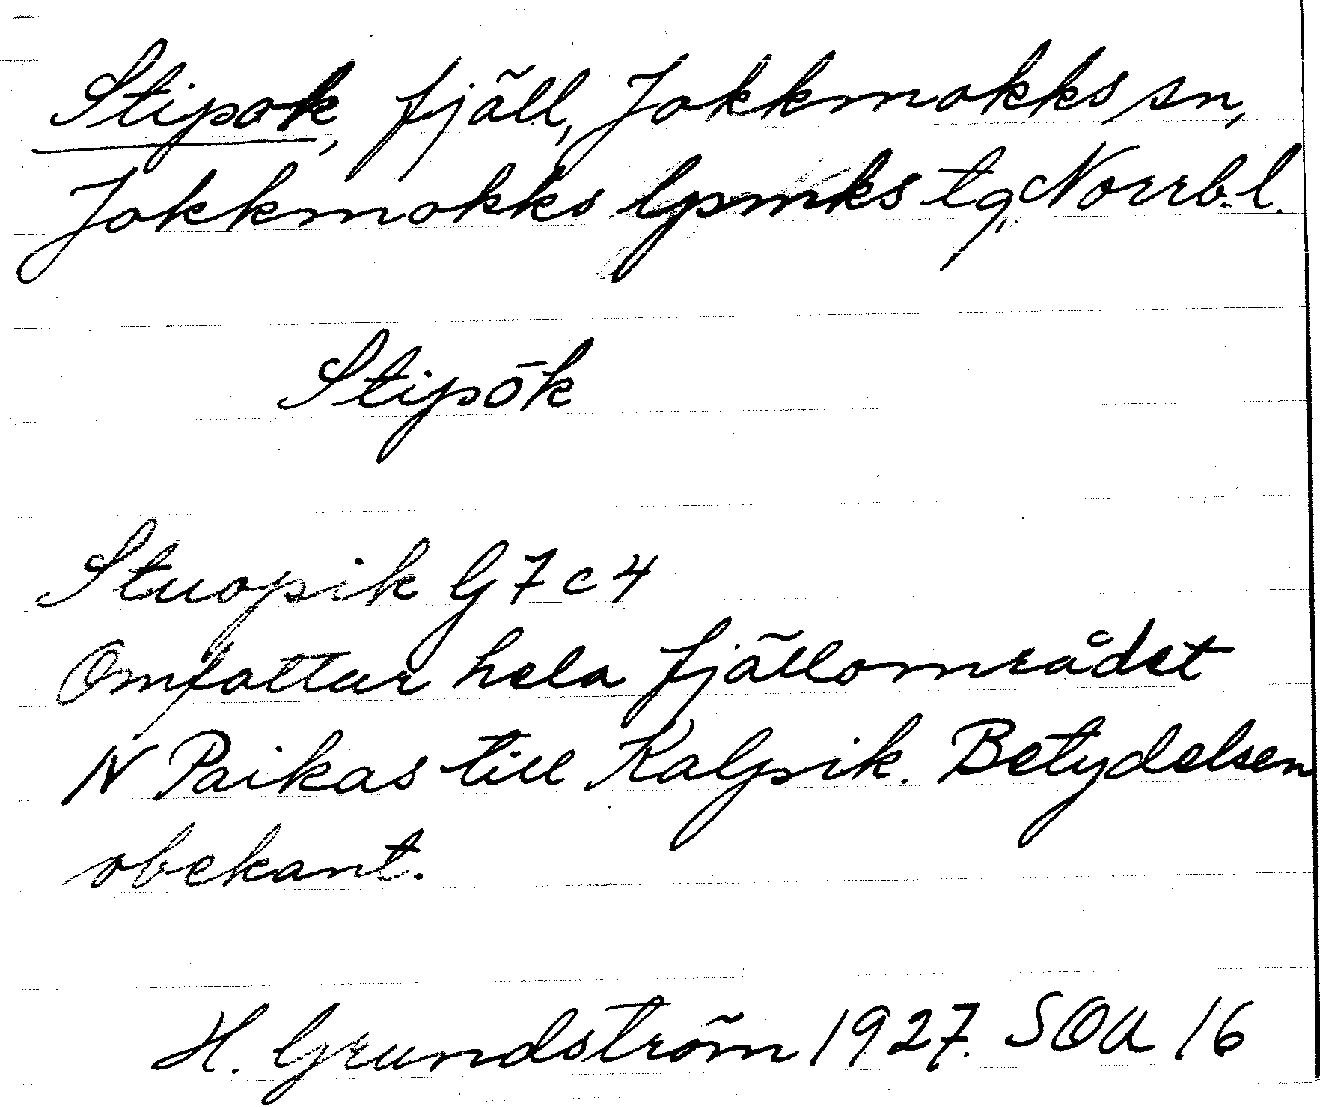 Stipok, fjäll, Jokkmokks sn,
Jokkmokks lpmks tg, Norrb.l.
Stipōk
Stuopik G7c4
Omfattar hela fjällområdet
N Paikas till Kalpik. Betydelsen
obekant.
H. Grundström 1927. SOA 16